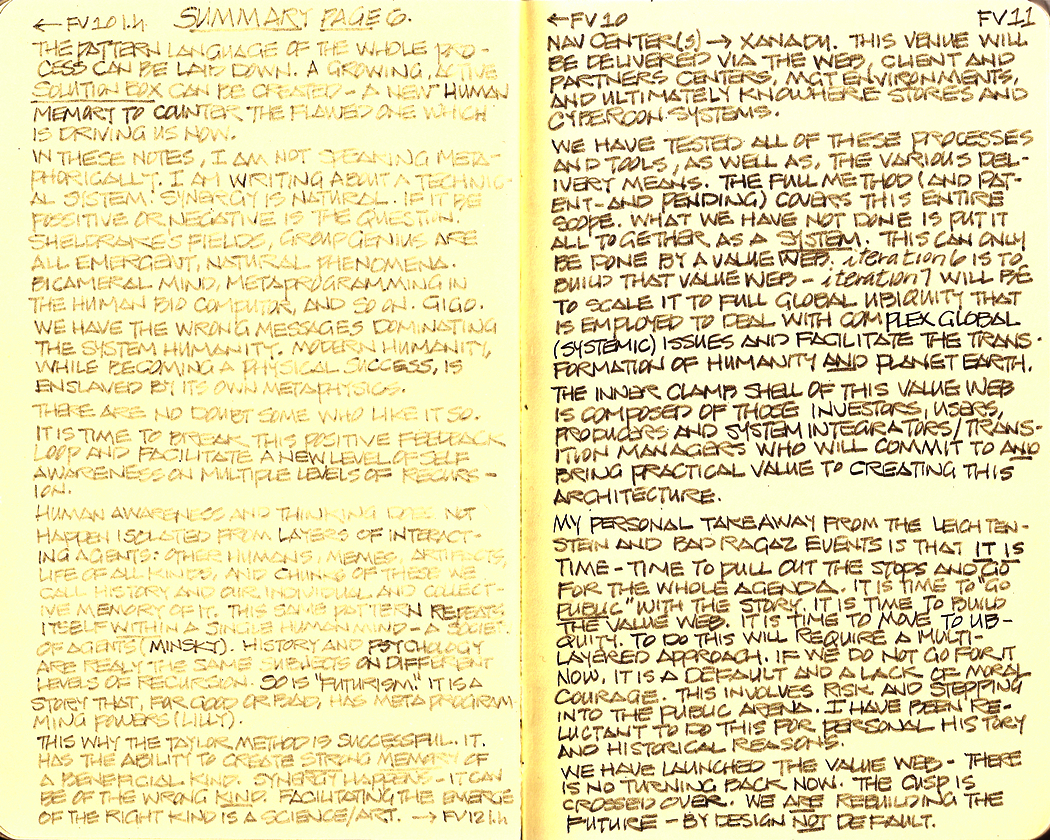 ← FV 10 1.h SUMMARY PAGE 6.
THE PATTERN LANGUAGE OF THE WHOLE PRO-
CESS CAN BE LAID DOWN. A GROWING, ACTIVE
SOLUTION BOX CAN BE CREATED - A NEW "HUMAN
MEMORY TO COUNTER THE FLAWED ONE WHICH
IS DRIVING US NOW.
IN THESE NOTES, I AM NOT SPEAKING META-
PHORICALLY. I AM WRITING ABOUT A TECHNIC-
AL SYSTEM. SYNERGY IS NATURAL. IF IT BE
POSITIVE OR NEGATIVE IS THE QUESTION.
SHELDRAKE'S FIELDS, GROUP GENIUS ARE
ALL EMERGENT, NATURAL PHENOMENA.
BICAMERAL MIND, METAPROGRAMMING IN
THE HUMAN BIO COMPUTOR, AND SO ON. GIGO.
WE HAVE THE WRONG MESSAGES DOMINATING
THE SYSTEM HUMANITY. MODERN HUMANITY,
WHILE BECOMING A PHYSICAL SUCCESS, IS
ENSLAVED BY ITS OWN METAPHYSICS.
THERE ARE NO DOUBT SOME WHO LIKE IT SO.
IT IS TIME TO BREAK THIS POSITIVE FEEDBACK
LOOP AND FACILITATE A NEW LEVEL OF SELF
AWARENESS ON MULTIPLE LEVELS OF RECURS-
ION.
HUMAN AWARENESS AND THINKING DOES NOT
HAPPEN ISOLATED FROM LAYERS OF INTERACT-
ING AGENTS: OTHER HUMANS, MEMES, ARTIFACTS,
LIFE OF ALL KINDS, AND CHUNKS OF THESE WE
CALL HISTORY AND OUR INDIVIDUAL AND COLLECT-
IVE MEMORY OF IT. THIS SAME PATTERN REPEATS
ITSELF WITHIN A SINGLE HUMAN MIND - A SOCIETY
OF AGENTS (MINSKY). HISTORY AND PSYCHOLOGY
ARE REALY THE SAME SUBJECTS ON DIFFERENT
LEVELS OF RECURSION. SO IS "FUTURISM." IT IS A
STORY THAT, FOR GOOD OR BAD, HAS META PROGRAM
MING POWERS (LILLY).
THIS WHY THE TAYLOR METHOD IS SUCCESSFUL. IT.
HAS THE ABILITY TO CREATE STRONG MEMORY OF
A BENEFICIAL KIND. SYNERGY HAPPENS - IT CAN
BE OF THE WRONG KIND. FACILITATING THE EMERGE
OF THE RIGHT KIND IS A SCIENCE/ART. → FV 12 1.h
← FV 10 FV 11
NAV CENTER(S) → XANADU. THIS VENUE WILL
BE DELIVERED VIA THE WEB, CLIENT AND
PARTNERS CENTERS, MGT ENVIRONMENTS,
AND ULTIMATELY KNOWHERE STORES AND
CYBERCON SYSTEMS.
WE HAVE TESTED ALL OF THESE PROCESSES
AND TOOLS, AS WELL AS, THE VARIOUS DEL-
IVERY MEANS. THE FULL METHOD (AND PAT-
ENT-AND PENDING) COVERS THIS ENTIRE
SCOPE. WHAT WE HAVE NOT DONE IS PUT IT
ALL TOGETHER AS A SYSTEM. THIS CAN ONLY
BE DONE BY A VALUE WEB. iteration 6 IS TO
BUILD THAT VALUE WEB - iteration 7 WILL BE
TO SCALE IT TO FULL GLOBAL UBIQUITY THAT
IS EMPLOYED TO DEAL WITH COMPLEX GLOBAL
(SYSTEMIC) ISSUES AND FACILITATE THE TRANS-
FORMATION OF HUMANITY AND PLANET EARTH.
THE INNER CLAMP SHELL OF THIS VALUE WEB
IS COMPOSED OF THOSE INVESTORS, USERS,
PRODUCERS AND SYSTEM INTEGRATORS/TRANS-
ITION MANAGERS WHO WILL COMMIT TO AND
BRING PRACTICAL VALUE TO CREATING THIS
ARCHITECTURE.
MY PERSONAL TAKEAWAY FROM THE LEICHTEN-
STEIN AND BAD RAGAZ EVENTS IS THAT IT IS
TIME - TIME TO PULL OUT THE STOPS AND GO
FOR THE WHOLE AGENDA. IT IS TIME TO "GO
PUBLIC" WITH THE STORY. IT IS TIME TO BUILD
THE VALUE WEB. IT IS TIME TO MOVE TO UB-
QUITY. TO DO THIS WILL REQUIRE A MULTI-
LAYERED APPROACH. IF WE DO NOT GO FOR IT
NOW, IT IS A DEFAULT AND A LACK OF MORAL
COURAGE. THIS INVOLVES RISK AND STEPPING
INTO THE PUBLIC ARENA. I HAVE BEEN RE-
LUCTANT TO DO THIS FOR PERSONAL HISTORY
AND HISTORICAL REASONS.
WE HAVE LAUNCHED THE VALUE WEB - THERE
IS NO TURNING BACK NOW. THE CUSP IS
CROSSED OVER. WE ARE REBUILDING THE
FUTURE - BY DESIGN NOT DEFAULT.